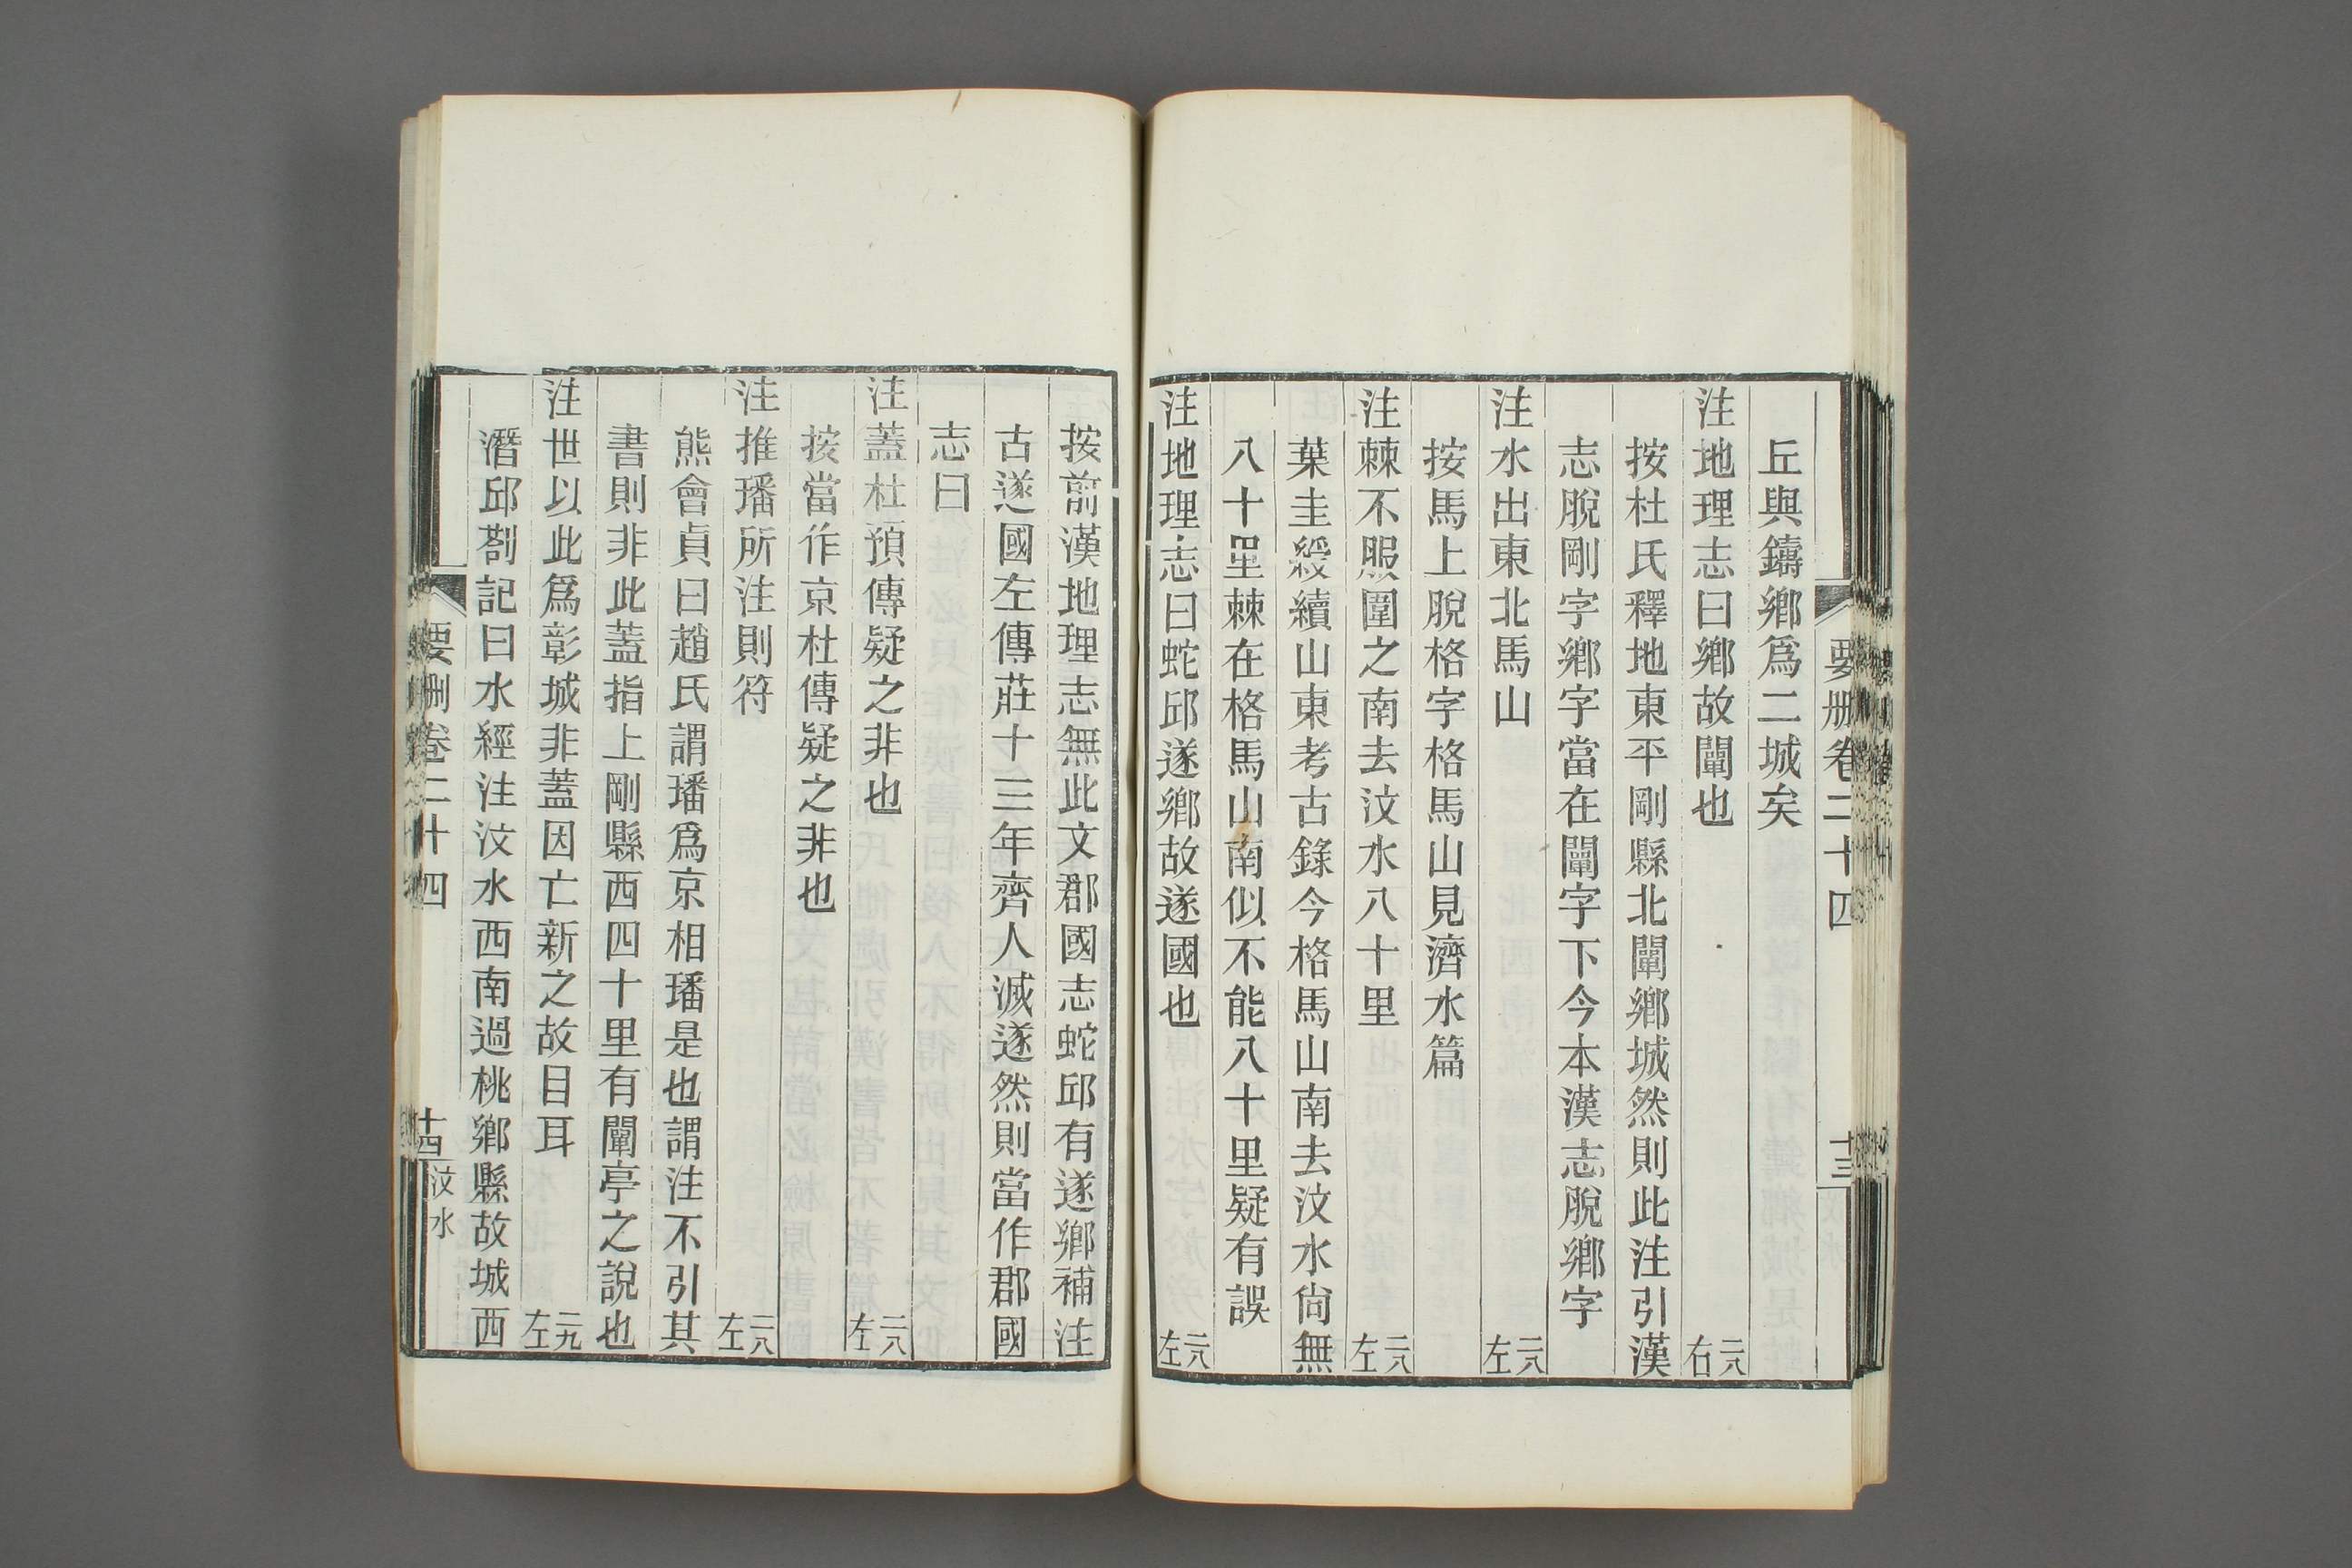 要刪卷二十四
十三
丘與鑄鄉爲二城矣
注地理志曰鄉故闡也 二八右
按杜氏釋地東平剛縣北闡鄉城然則此注引漢
志脫剛字鄉字當在闡字下今本漢志脫鄉字
注水出東北馬山 二八左
按馬上脫格字格馬山見濟水篇
注棘不服圍之南去汶水八十里 二八左
葉圭綬續山東考古錄今格馬山南去汶水尙無
八十里棘在格馬山南似不能八十里疑有誤
注地理志曰蛇邱遂鄉故遂國也 二八左
按前漢地理志無此文郡國志蛇邱有遂鄉補注
古遂國左傳莊十三年齊人滅遂然則當作郡國
志曰
注蓋杜預傳疑之非也 二八左
按當作京杜傳疑之非也
注推璠所注則符 二八左
熊會貞曰趙氏謂璠爲京相璠是也謂注不引其
書則非此蓋指上剛縣西四十里有闡亭之說也
注世以此爲彰城非蓋因亡新之故目耳 二九左
潛邱劄記曰水經注汶水西南過桃鄉縣故城西
要刪卷二十四
十四
汶水